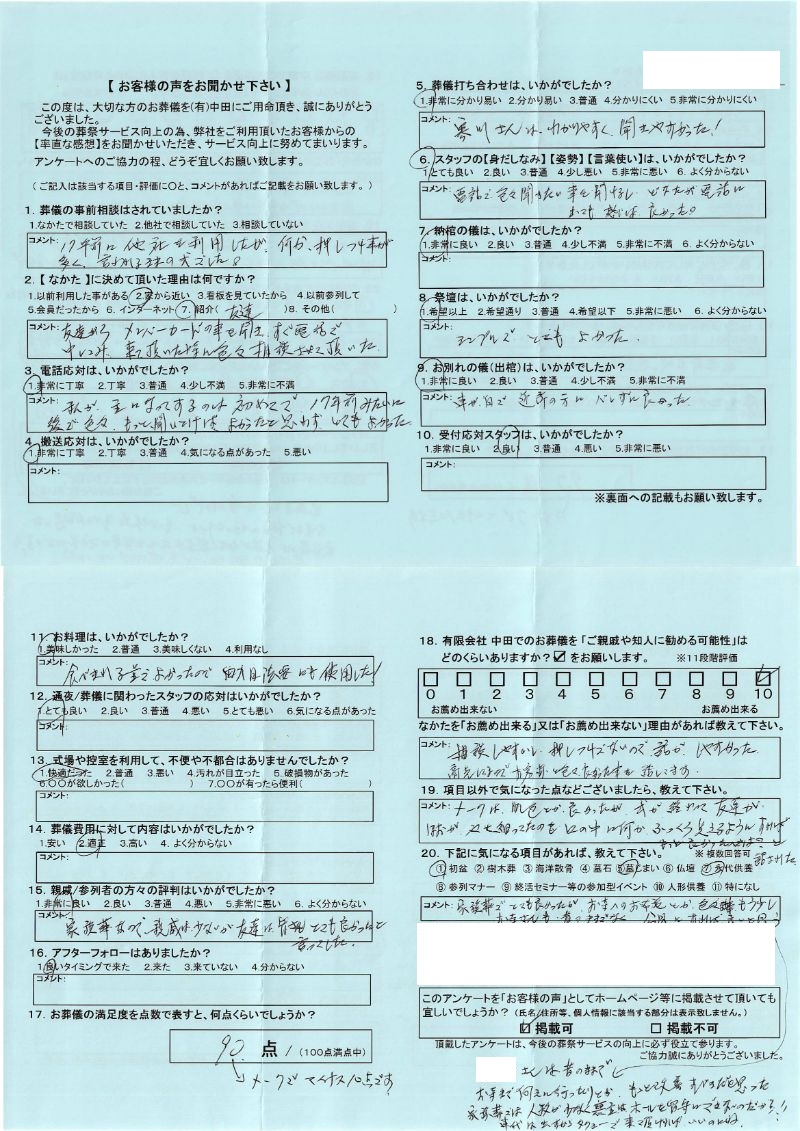 【 お客様の声をお聞かせ下さい 】
この度は、大切な方のお葬儀を(有)中田にご用命頂き、誠にありがとう
ございました。
今後の葬祭サービス向上の為、弊社をご利用頂いたお客様からの
【率直な感想】をお聞かせいただき、サービス向上に努めてまいります。
アンケートへのご協力の程、どうぞ宜しくお願い致します。
（ご記入は該当する項目・評価に○と、コメントがあればご記載をお願い致します。）
1. 葬儀の事前相談はされていましたか？
1.なかたで相談していた 2.他社で相談していた 3.相談していない
コメント: 17年前に他社を利用したが、何か、押しつけ事が
多く、言われるままの式でした。
2.【 なかた 】に決めて頂いた理由は何ですか？
1.以前利用した事がある 2.家から近い 3.看板を見ていたから 4.以前参列して
5.会員だったから 6. インターネット 7. 紹介( 友達 )8. その他( )
コメント: 友達から メンバーカードの事を聞き、すぐ電話で
申し込み、来て頂いた時に色々相談させて頂いた。
3. 電話応対は、いかがでしたか？
1.非常に丁寧 2.丁寧 3.普通 4.少し不満 5.非常に不満
コメント: 私が、主になってするのは初めてで 17年前みたいに
後で色々、もっと聞いとけばよかったと思わず とてもよかった。
4. 搬送応対は、いかがでしたか？
1.非常に丁寧 2.丁寧 3.普通 4.気になる点があった 5.悪い
コメント:
5. 葬儀打ち合わせは、いかがでしたか？
1.非常に分かり易い 2.分かり易い 3.普通 4.分かりにくい 5.非常に分かりにくい
コメント: 寒川さんは、わかりやすく、聞きやすかった！
6. スタッフの【身だしなみ】【姿勢】【言葉使い】は、いかがでしたか？
1.とても良い 2.良い 3.普通 4.少し悪い 5.非常に悪い 6. よく分からない
コメント: 電話で色々聞きたい事を聞けるし、どなたが電話に
出ても 感じは、良かった。
7. 納棺の儀は、いかがでしたか？
1.非常に良い 2.良い 3.普通 4.少し不満 5.非常に不満 6. よく分からない
コメント:
8. 祭壇は、いかがでしたか？
1.希望以上 2.希望通り 3.普通 4.希望以下 5.非常に悪い 6. よく分からない
コメント: シンプルで とても よかった。
9. お別れの儀(出棺)は、いかがでしたか？
1.非常に良い 2.良い 3.普通 4.少し悪い 5.非常に悪い 6. よく分からない
コメント: 車が白で 近所の方に バレずに良かった
10. 受付応対スタッフは、いかがでしたか？
1.非常に良い 2.良い 3.普通 4.悪い 5.非常に悪い
コメント:
※裏面への記載もお願い致します。
11. お料理は、いかがでしたか？
1.美味しかった 2.普通 3.美味しくない 4.利用なし
コメント: 食べきれる量でよかったので 四九日法要にも使用した！
12. 通夜/葬儀に関わったスタッフの応対はいかがでしたか？
1.とても良い 2.良い 3.普通 4.悪い 5.とても悪い 6.気になる点があった
コメント:
13. 式場や控室を利用して、不便や不都合はありませんでしたか？
1.快適だった 2.普通 3.悪い 4.汚れが目立った 5.破損物があった
6.○○が欲しかった( ) 7.○○が有ったら便利( )
14. 葬儀費用に対して内容はいかがでしたか？
1.安い 2.適正 3.高い 4. よく分からない
コメント:
15. 親戚/参列者の方々の評判はいかがでしたか？
1.非常に良い 2.良い 3.普通 4.悪い 5.非常に悪い 6. よく分からない
コメント: 家族葬なので、親戚は少ないが友達は、皆判 とても良かったと
言ってました。
16. アフターフォローはありましたか？
1.良いタイミングで来た 2.来た 3.来ていない 4.分からない
コメント:
17. お葬儀の満足度を点数で表すと、何点くらいでしょうか？
90 点 / (100点満点中)
メークで マイナス10点です
18. 有限会社 中田でのお葬儀を「ご親戚や知人に勧める可能性」は
どのくらいありますか？☑ をお願いします。 ※11段階評価
0 1 2 3 4 5 6 7 8 9 10
お薦め出来ない お薦め出来る
なかたを「お薦め出来る」又は「お薦め出来ない」理由があれば教えて下さい。
コメント: 相談しやすいし、押しつけでないので 話が しやすかった。
19. 項目以外で気になった点などございましたら、教えて下さい。
コメント: メークは、肌色とか良かったが 式が終わって 友達が
20. 下記に気になる項目があれば、教えて下さい。 ※複数回答可
① 初盆 ② 樹木葬 ③ 海洋散骨 ④ 墓石 ⑤ 墓じまい ⑥ 仏壇 ⑦ 永代供養
⑧ 参列マナー ⑨ 終活セミナー等の参加型イベント ⑩ 人形供養 ⑪ 特になし
コメント: 家族葬でとても良かったが お寺へのお布施とか 色々 もう少し
このアンケートを「お客様の声」としてホームページ等に掲載させて頂いても
宜しいでしょうか？ (氏名/住所等、個人情報に該当する部分は表示致しません。)
☑ 掲載可 □ 掲載不可
頂戴したアンケートは、今後の葬祭サービスの向上に必ず役立て参ります。
ご協力誠にありがとうございました。